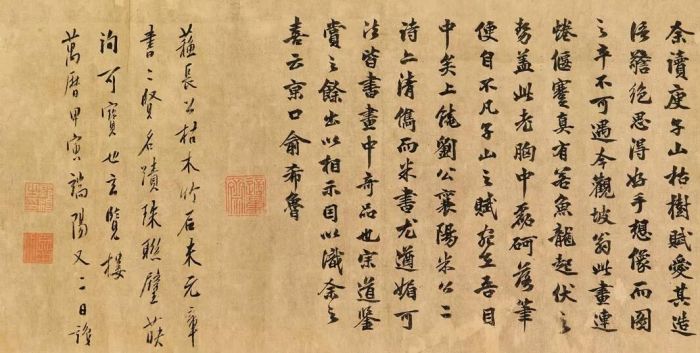 余讀庾子山枯樹賦愛其造
語警絕思得好手想像而圖
之卒不可遇今觀坡翁此畫連
蜷偃蹇真有若魚龍起伏之
勢蓋此老胸中磊砢落筆
便自不凡子山之賦宛在吾目
中矣上饒劉公襄陽米公二
詩亦清儁而米書尤遒媚可
法皆書畫中奇品也宗道鑒
賞之餘出以相示因以識余之
喜云京口俞希魯
蘇長公枯木竹石米元章
書二賢名蹟珠聯璧映
洵可寶也玄覽樓
萬曆甲寅端陽又二日識